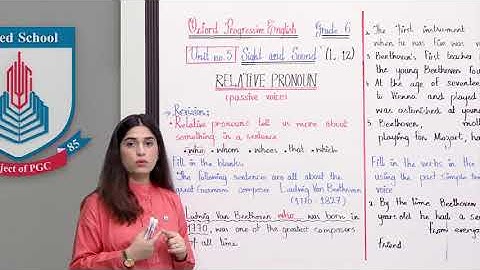 ed School
85
ject of PGC
Oxford Progressive English Grade 6
Unit no.5 "Sight and Sound" (L. 12)
RELATIVE PRONOUN
(passive voice)
Revision:
Relative pronouns tell us more about
something in a sentence.
• who • whom • whose • that • which
Fill in the blanks.
The following sentences are all about the
great German composer Ludwig Van Beethoven
(1770 - 1827)
Ludwig Van Beethoven who was born in
1770, was one of the greatest composers
of all time.
2. The first instrument
when he was him was
3. Beethoven's first teacher
the young Beethoven fou
4. At the age of seventeen
to Vienna and played
was astonished at young
5. Beethoven, moth
playing for Mozart, ha
Fill in the verbs in the
using the past simple
voice
2. By the time Beethoven
years old he had a se
from every
friend.